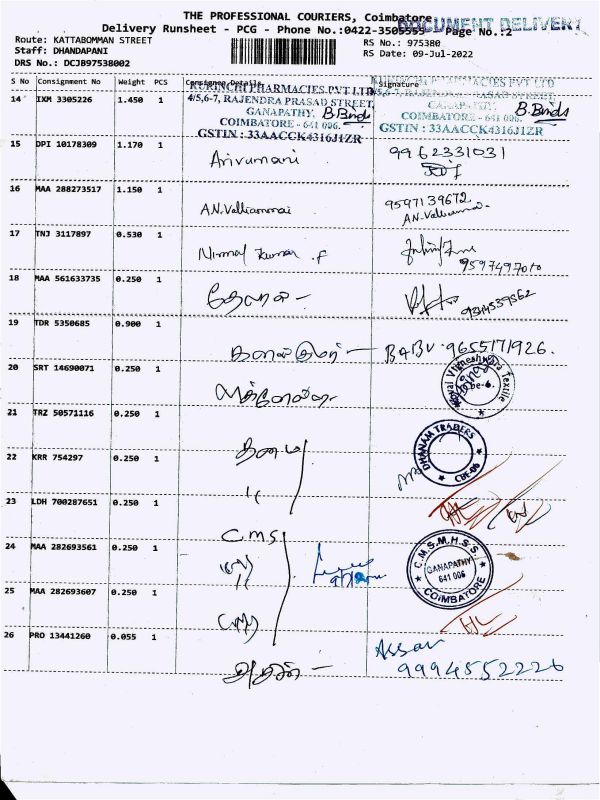 THE PROFESSIONAL COURIERS, Coimbatore
Delivery Runsheet - PCG - Phone No.:0422-3505555 Page No.:2
DOCUMENT DELIVERY
Route: KATTABOMMAN STREET
RS No.: 975380
Staff: DHANDAPANI
RS Date: 09-Jul-2022
DRS No.: DCJB97538002
S No Consignment No Weight PCS Consignee Details Signature
14 IXM 3305226 1.450 1
KURINCHI PHARMACIES PVT LTD
4/5,6-7, RAJENDRA PRASAD STREET,
GANAPATHY, B.Binds
COIMBATORE - 641 006.
GSTIN : 33AACCK4316J1ZR
PHARMACIES PVT LTD
4/5,6-7, RAJENDRA PRASAD STREET,
GANAPATHY, B.Binds
COIMBATORE - 641 006.
GSTIN : 33AACCK4316J1ZR
15 DPI 10178309 1.170 1 Arivumani 9962331031
16 MAA 288273517 1.150 1 A.N.Valliammai 9597139672
A.N.Valliammai
17 TNJ 3117897 0.530 1 Nirmal Kumar .F
18 MAA 561633735 0.250 1
19 TDR 5350685 0.900 1 BABU 9655171926.
20 SRT 14690071 0.250 1
Vigneshwara Textile
Cbe-6.
21 TRZ 50571116 0.250 1
DHANAM TRADERS
CBE-06
22 KRR 754297 0.250 1 "
23 LDH 700287651 0.250 1 C.M.S
24 MAA 282693561 0.250 1
C.M.S.M.H.S.S
GANAPATHY
641 006
COIMBATORE
25 MAA 282693607 0.250 1
26 PRO 13441260 0.055 1
9994552226